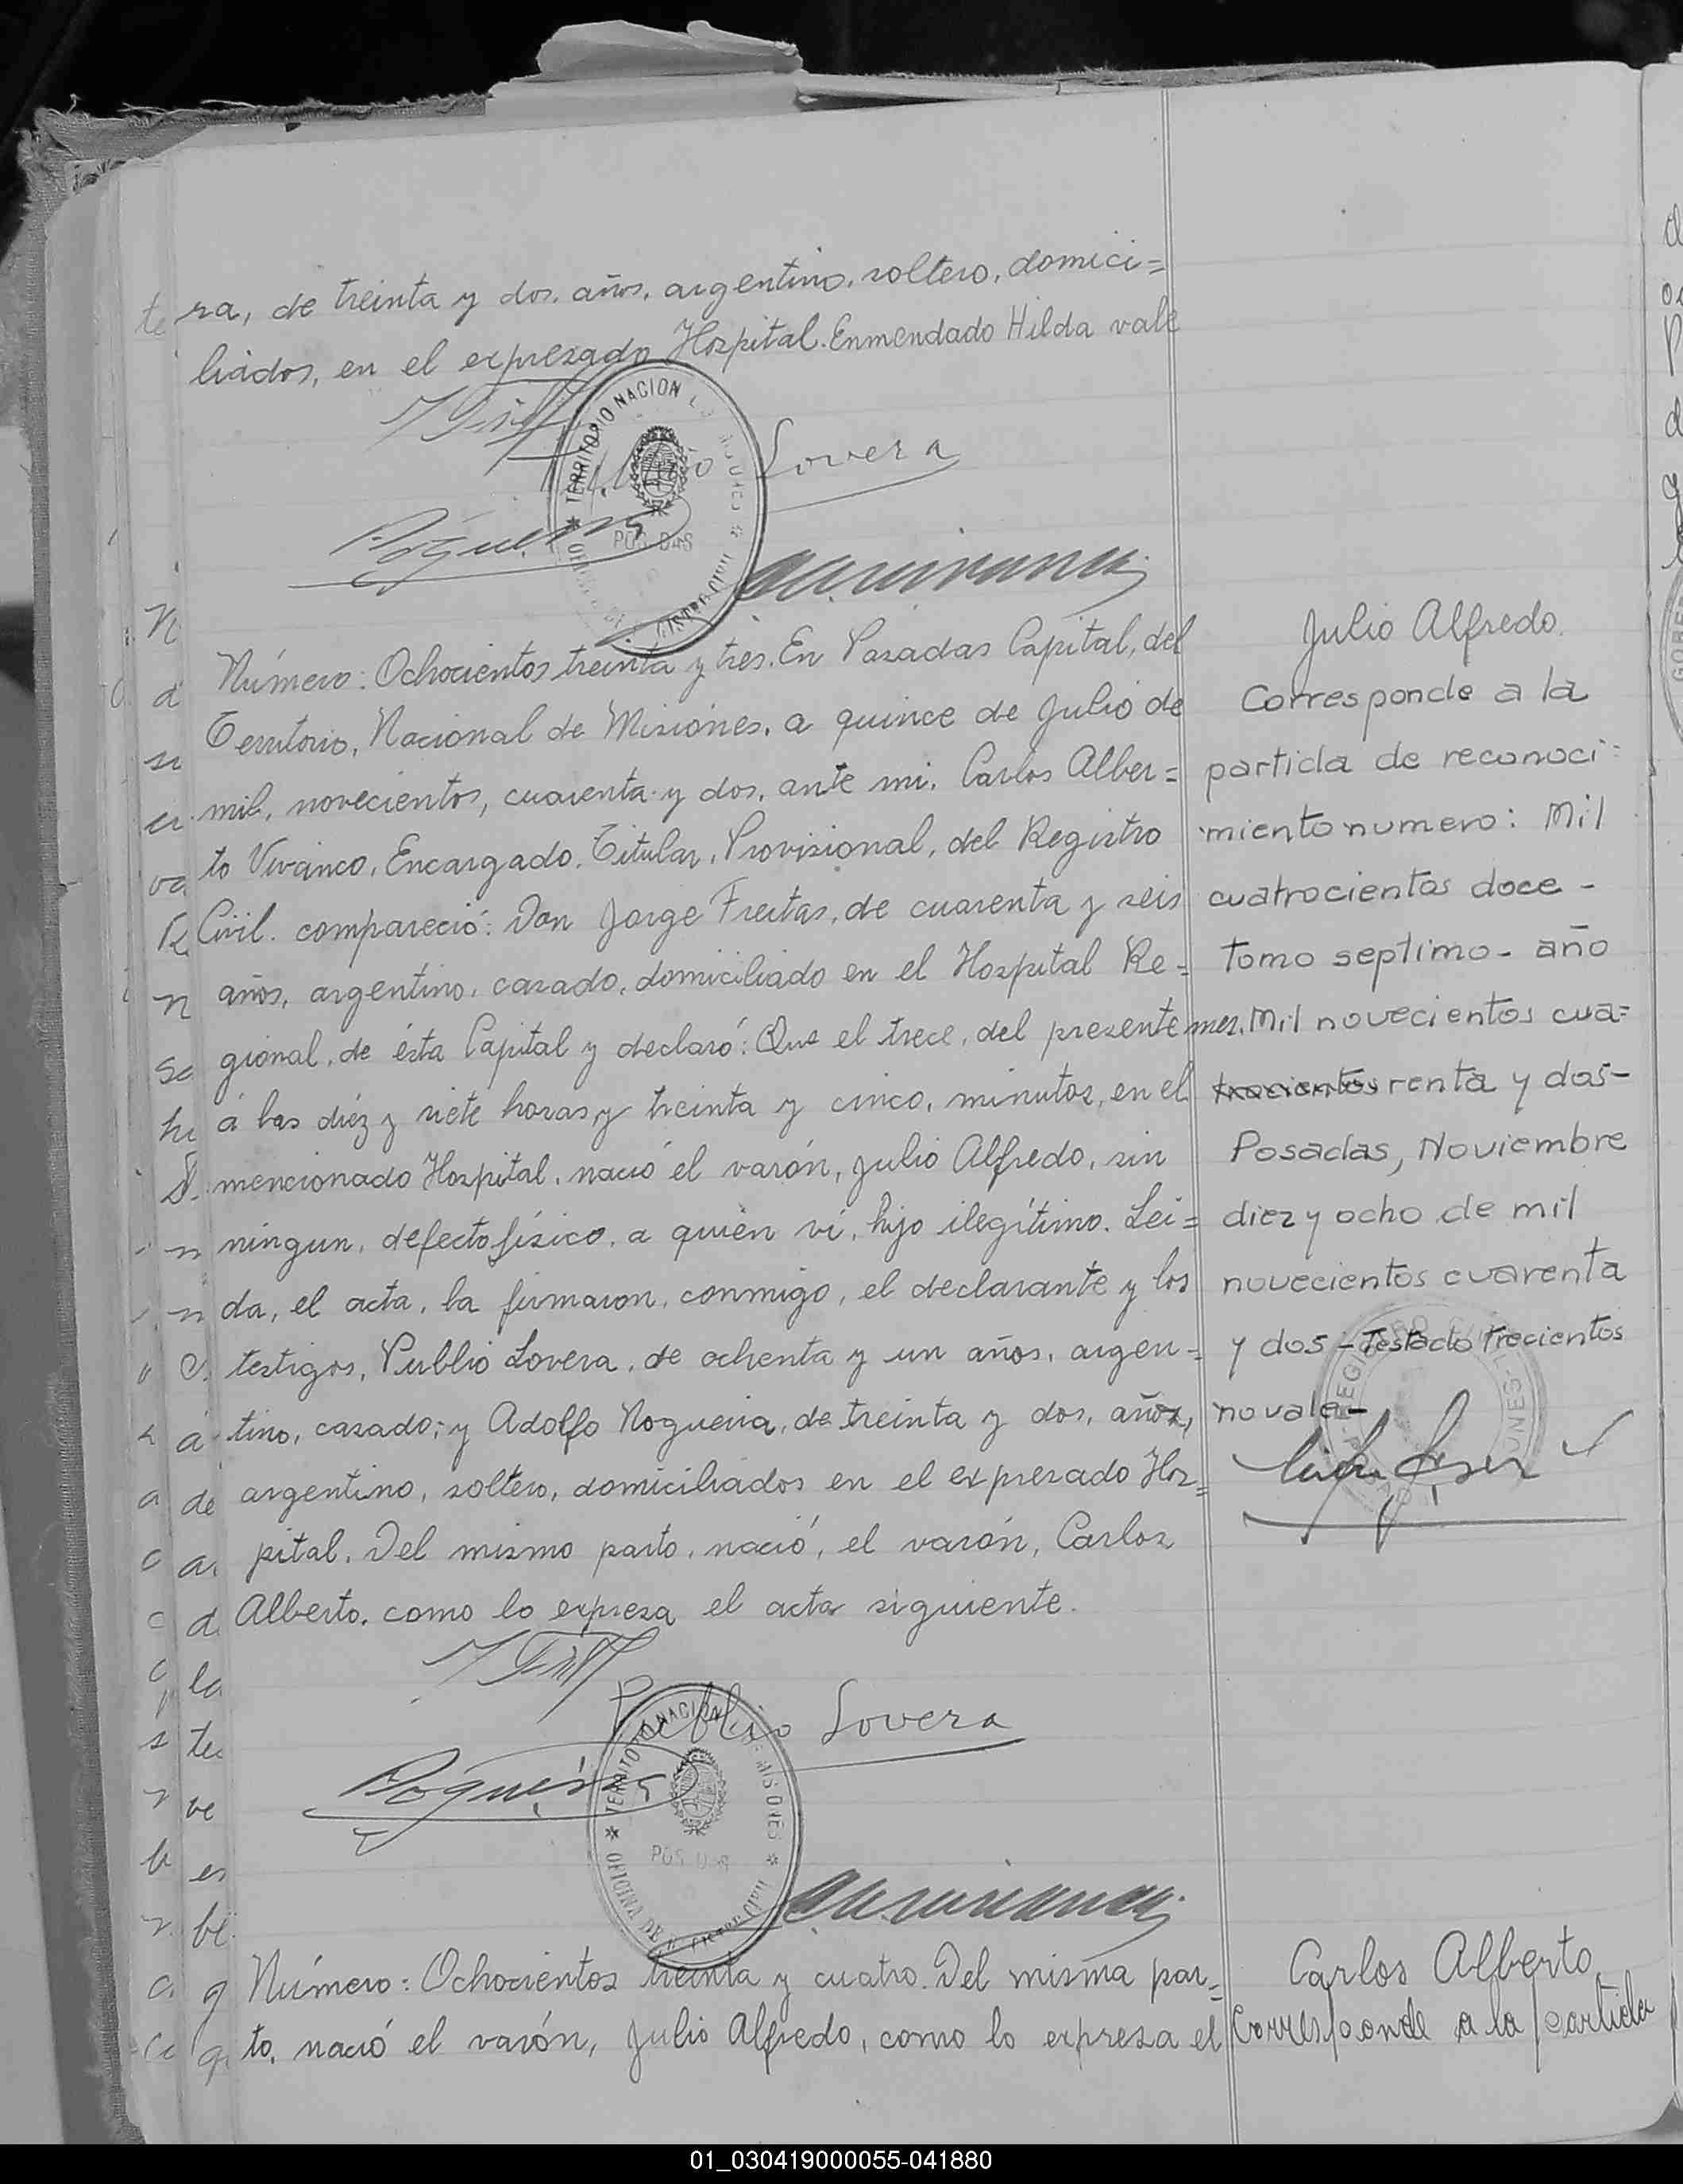 ra, de treinta y dos, años, argentino, soltero, domici=
liados, en el expresado Hospital. Enmendado Hilda vale
TERRITORIO NACIONAL
Lovera
Nogueira
POSADAS
Número: Ochocientos treinta y tres. En Posadas Capital, del
Territorio, Nacional de Misiones, a quince de Julio de
mil, novecientos, cuarenta y dos, ante mi, Carlos Alber=
to Vivanco, Encargado, Titular, Provisional, del Registro
Civil. compareció: Don Jorge Freitas, de cuarenta y seis
años, argentino, casado, domiciliado en el Hospital Re=
gional, de ésta Capital y declaró: Que el trece, del presente mes,
á las diéz y siete horas, y treinta y cinco, minutos, en el
mencionado Hospital, nació el varón, Julio Alfredo, sin
ningun, defecto físico, a quién ví, hijo ilegítimo. Lei=
da, el acta, la firmaron, conmigo, el declarante y los
testigos, Publio Lovera, de ochenta y un años, argen=
tino, casado; y Adolfo Nogueira, de treinta y dos, años,
argentino, soltero, domiciliados en el expresado Hos=
pital. Del mismo parto, nació, el varón, Carlos
Alberto, como lo expresa el acta siguiente.
Publio Lovera
Nogueira
TERRITORIO NACIONAL DE MISIONES
POSADAS
OFICINA DE REGISTRO CIVIL
Número: Ochocientos treinta y cuatro. Del misma par=
to, nació el varón, Julio Alfredo, como lo expresa el
Julio Alfredo.
Corresponde a la
partida de reconoci=
miento numero: Mil
cuatrocientos doce -
Tomo septimo - año
Mil novecientos cua=
trocientos renta y dos-
Posadas, Noviembre
diez y ocho de mil
novecientos cuarenta
y dos - Testado trecientos
no vale -
Carlos Alberto
Corresponde a la partida
01_030419000055-041880